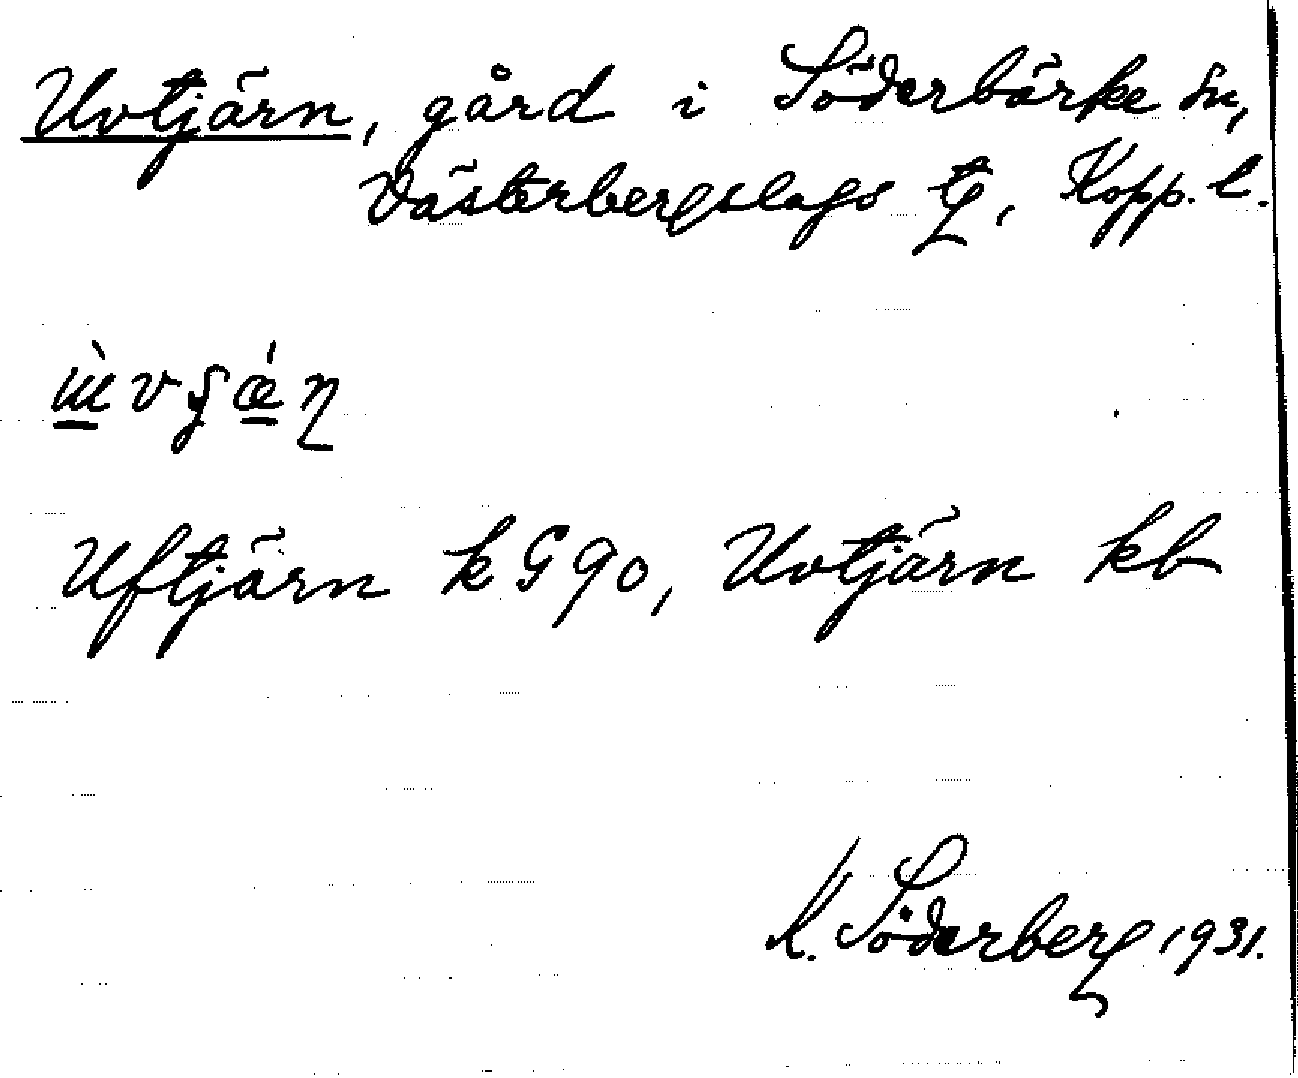 Uvtjärn, gård i Söderbärke sn,
Västerbergslags tg, Kopp. l.
Uftjärn kG 90, Uvtjärn kb
K. Söderberg 1931.